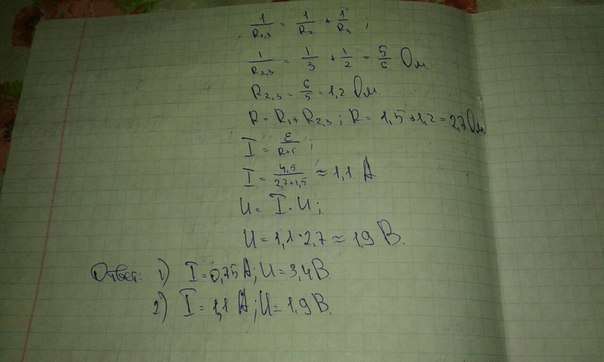 1/R₂,₃ = 1/R₂ + 1/R₃ ;
1/R₂,₃ = 1/3 + 1/2 = 5/6 Ом
R₂,₃ = 6/5 = 1,2 Ом
R = R₁ + R₂,₃ ; R = 1,5 + 1,2 = 2,7 Ом
I = ε/R+r ;
I = 4,5/2,7+1,5 ≈ 1,1 А
U = I · U ;
U = 1,1 · 2,7 ≈ 1,9 В.
Ответ: 1) I = 0,75 А; U = 3,4 В
2) I = 1,1 А; U = 1,9 В.